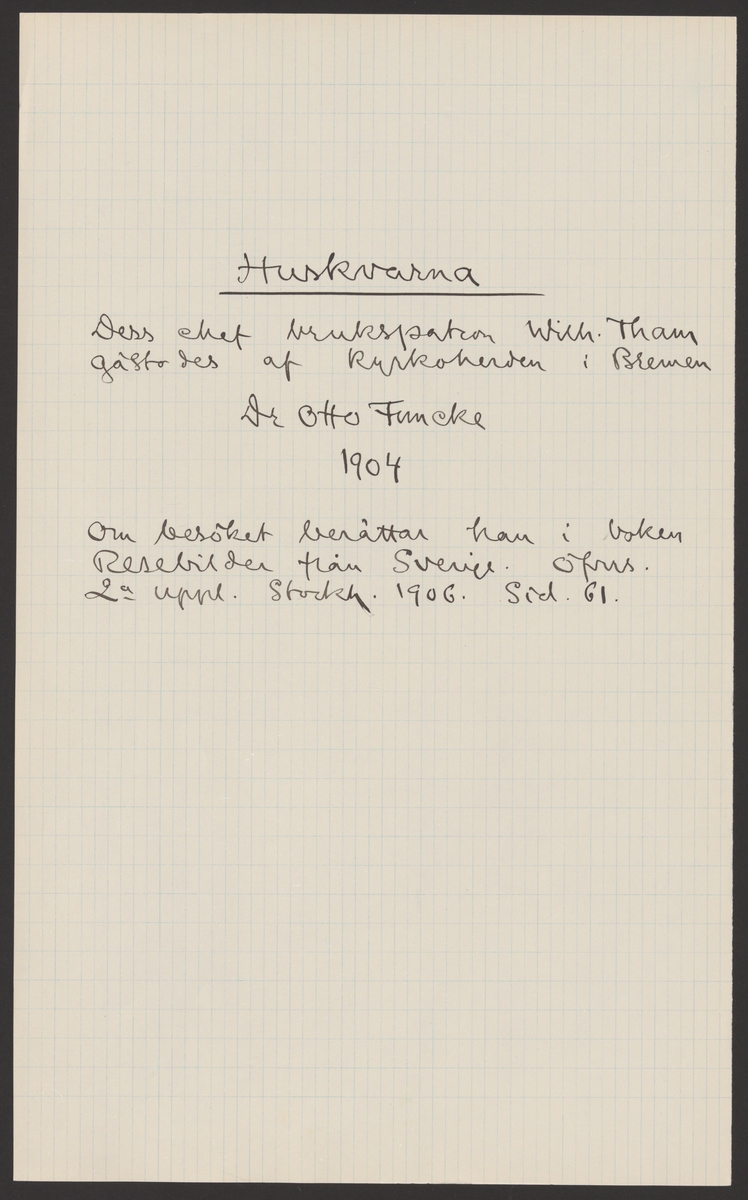 Huskvarna
Dess chef brukspatron Wilh. Tham
gästades af Kyrkoherden i Bremen
Dr Otto Funcke
1904
Om besöket berättar han i boken
Resebilder från Sverige. Öfvers.
2a uppl. Stockh. 1906. Sid. 61.